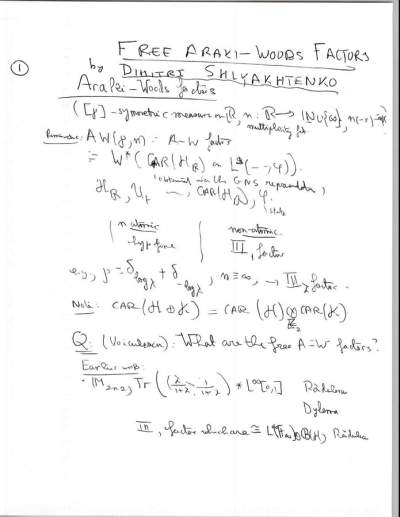 FREE ARAKI-WOODS FACTORS
① by DIMITRI SHLYAKHTENKO
Araki-Woods factors
([ρ] - symmetric measure on ℝ, n: ℝ → ℕ∪{∞}, n(-x)=n(x))
multiplicity fn.
AW(ρ,n): A-W factor
:= W*(CAR(H_ℝ) on L²(--,φ)).
obtained via the GNS representation,
H_ℝ, U_t ⤳ CAR(H_ℝ), φ. state
atomic | non-atomic
hyperfine | III₁ factor
e.g., ρ = δ_{log λ} + δ_{-log λ}, n ≡ ∞, → III_λ factor.
Note: CAR(H ⊕ K) = CAR(H) ⊗ CAR(K)
Q: (Voiculescu): What are the free A-W factors?
Earlier work:
· M_{2×2}, Tr((λ/1+λ, 1/1+λ)) * L^∞[0,1] Rădulescu
Dykema
III_λ factor which are ≅ L(F_∞)⊗B(H), Rădulescu